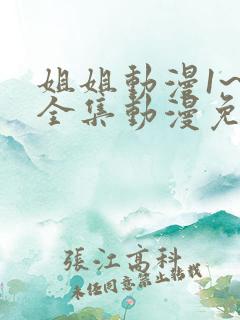 姐姐動漫1~
全集動漫免
張江高科
未經同意禁止轉載